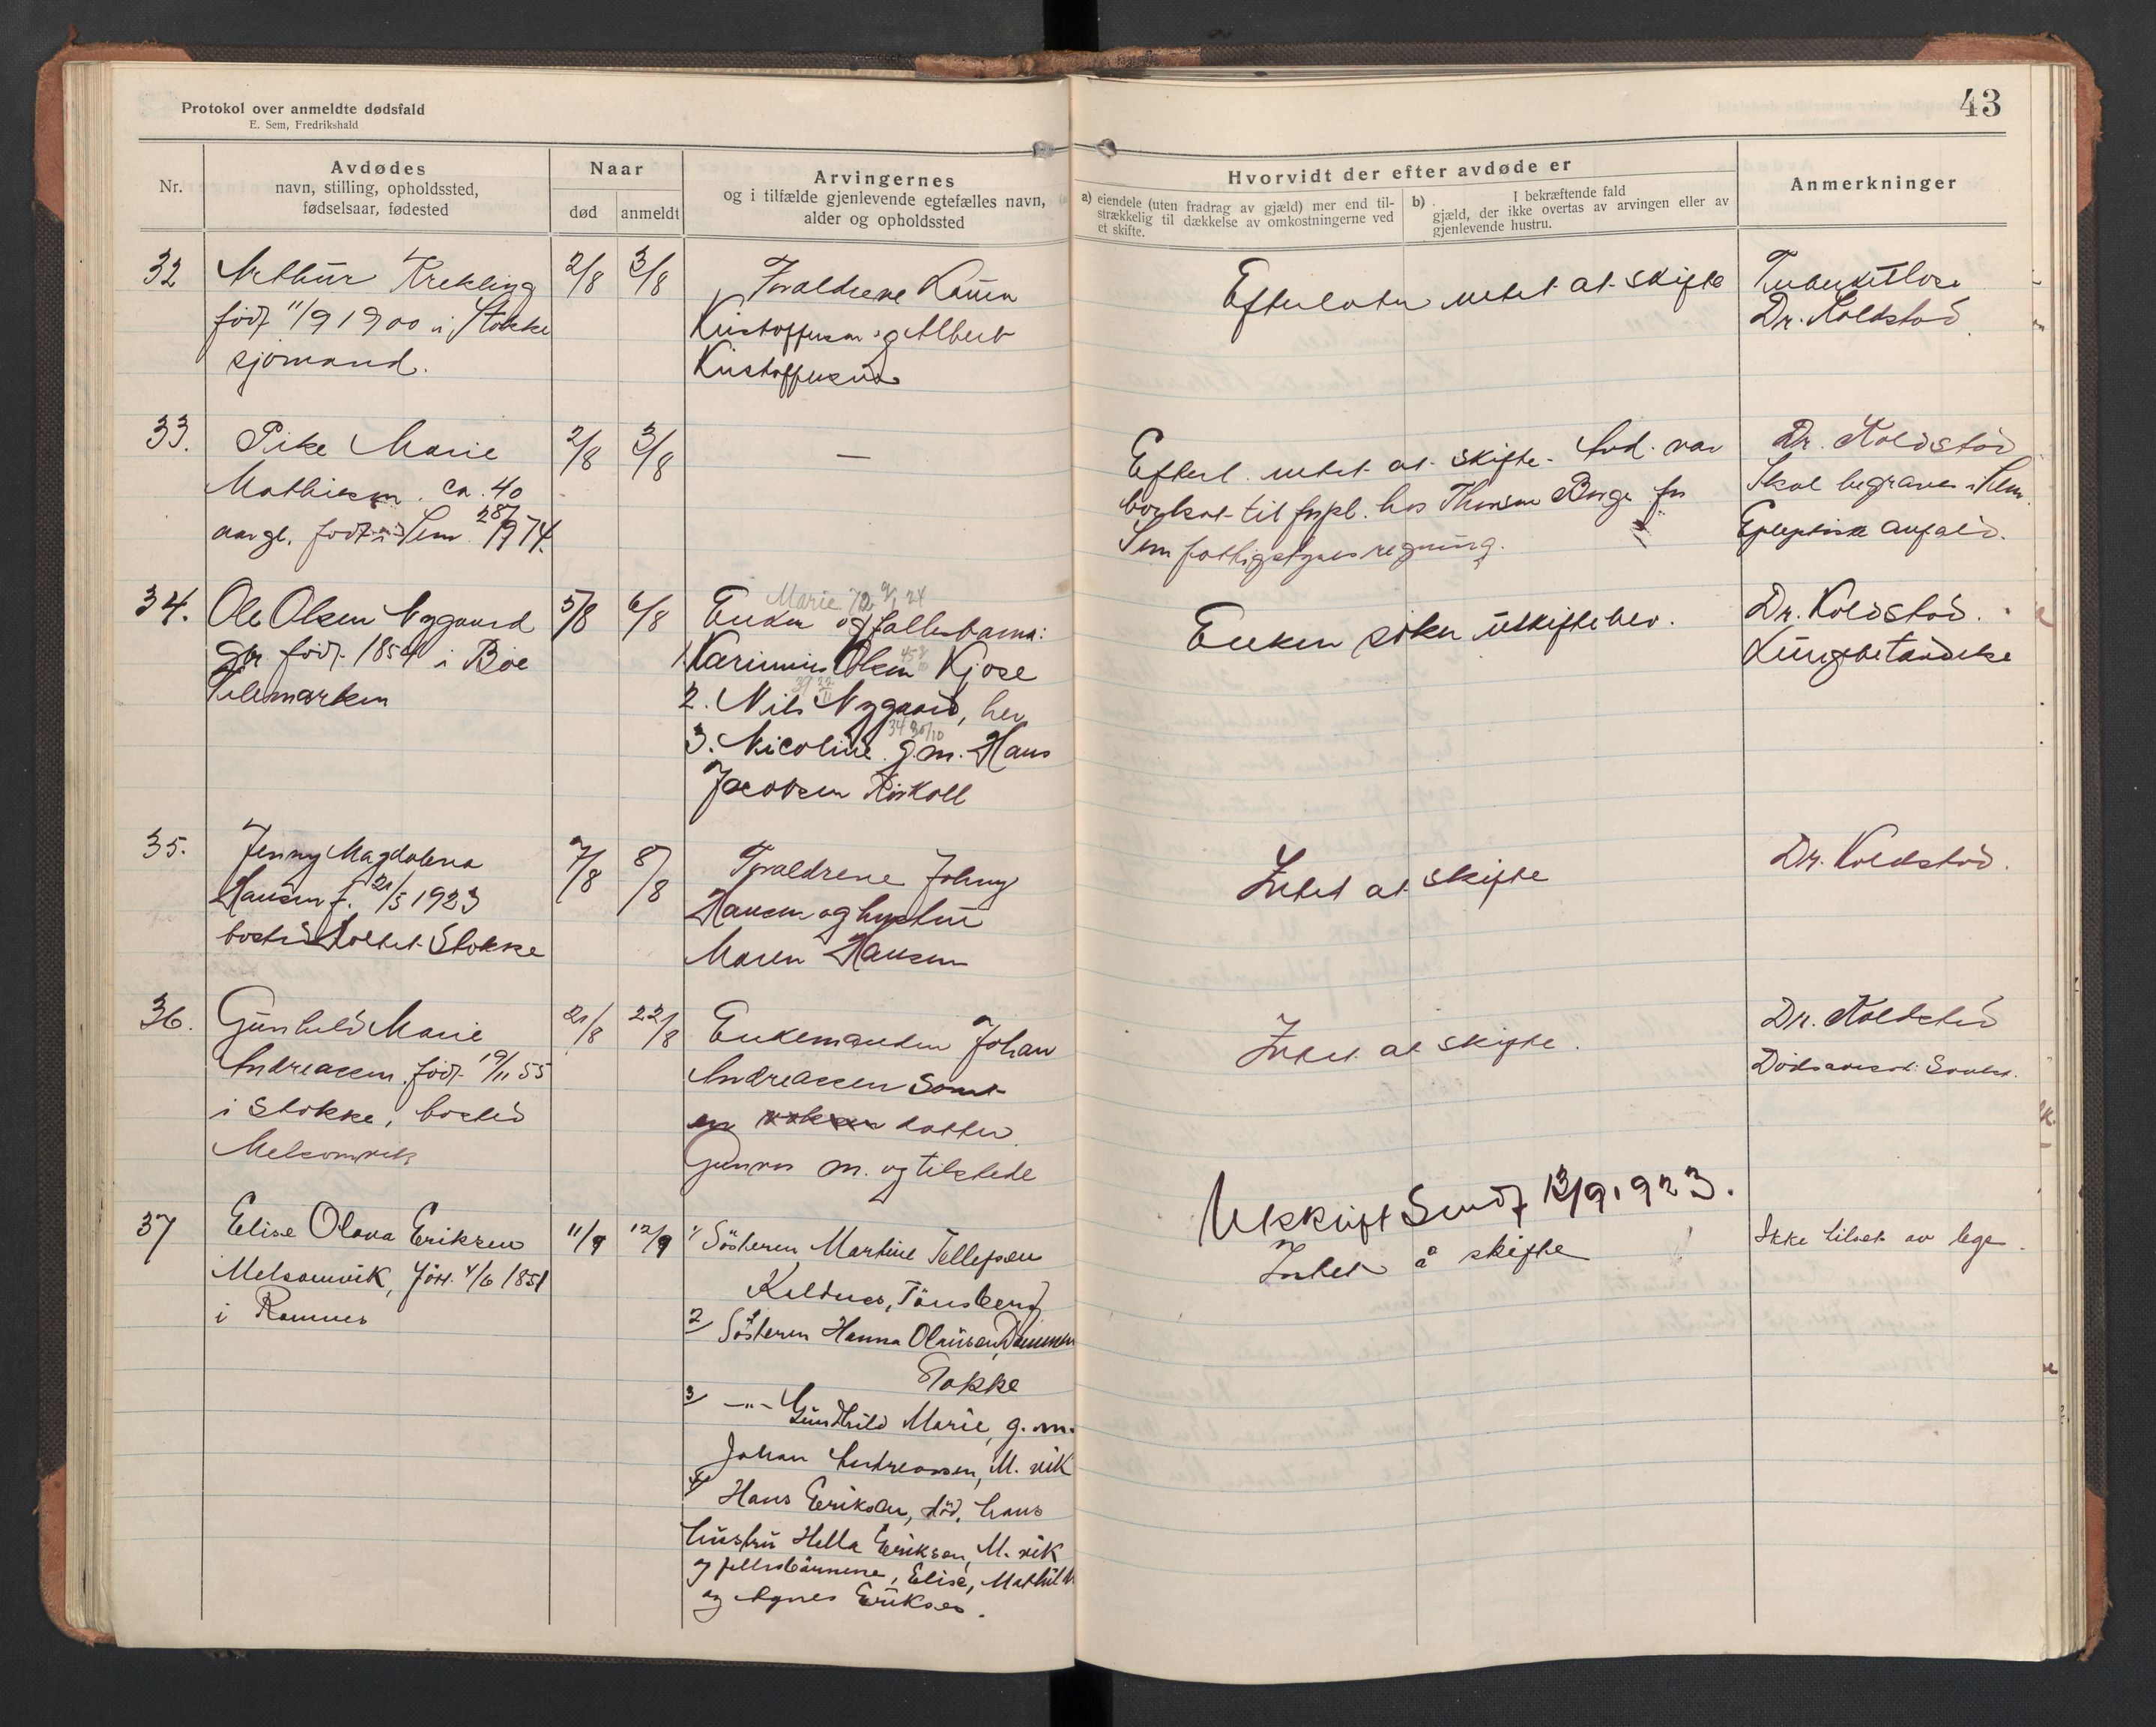 Protokol over anmeldte dødsfald
E. Sem, Fredrikshald
43
Nr.
Avdødes
navn, stilling, opholdssted,
fødselsaar, fødested
Naar
død
anmeldt
Arvingernes
og i tilfælde gjenlevende egtefælles navn,
alder og opholdssted
Hvorvidt der efter avdøde er
a) eiendele (uten fradrag av gjæld) mer end til-
strækkelig til dækkelse av omkostningerne ved
et skifte.
b) I bekræftende fald
gjæld, der ikke overtas av arvingen eller av
gjenlevende hustru.
Anmerkninger
32
Arthur Krekling
født 11/9 1900 i Stokke
sjömand.
2/8
3/8
Foraldrene
Kristoffersen og Albert
Kristoffersen
Efterlater intet at skifte
Tuberkulose
Dr. Koldstad
33.
Pike Marie
Mathiesen. ca. 40
aar gl. født i Sem
2/8
3/8
—
Efterl. intet at skifte. Avd. var
bortsat til forpl. hos Thomsen Berge for
Sem fattigstyres regning.
Dr. Koldstad
Skal begraves i Sem
Epileptisk anfald.
34.
Ole Olsen Nygaard
gbr. født 1854 i Böe
Telemarken
5/8
6/8
Marie 72 9/1 24
Enken og fællesbarna:
1. Karinius Olsen Kjose
2. Nils Nygaard, her
3. Nicoline g.m. Hans
Jacobsen
34 30/10
Enken söker uskiftebev.
Dr. Koldstad.
Lungebetændelse
35.
Jenny Magdalena
Hansen f. 21/5 1923
bosted Stokke
7/8
8/8
Foraldrene Johny
Hansen og hustru
Maren Hansen
Intet at skifte
Dr. Koldstad.
36.
Gunhild Marie
Andreassen. født 19/11 55
i Stokke, bosted
Melsomvik
21/8
22/8
Enkemanden Johan
Andreassen samt
en datter
m. og tilstede
Intet at skifte.
Dr. Koldstad
Dödsaarsak:
37
Elise Olava Eriksen
Melsomvik, född 4/6 1851
i Ramnes
11/9
12/9
1/ Sösteren Martine Tellefsen
Kaldnes, Tönsberg
2/ Sösteren Hanna Olaussen, Dammen
Stokke
3/ —"— Gundhild Marie, g.m.
Johan Andreassen, M. vik
4/ Hans Eriksen, död, hans
hustru Hella Eriksen, M. vik
og fellesbarnene, Elise, Mathilde
og Agnes Eriksen.
Utskrift Sendt 13/9 1923.
Intet å skifte
Ikke tilset av lege.